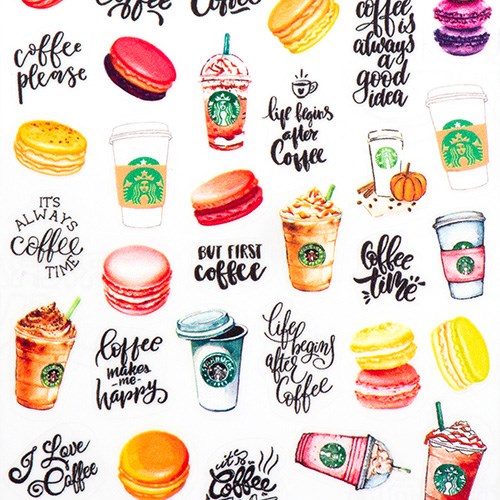 Coffee
Coffee
coffee
is
always
a
good
idea
coffee
please
life begins
after
Coffee
IT'S
ALWAYS
Coffee
TIME
BUT FIRST
coffee
Coffee
time
Coffee
makes
-me-
happy
STARBUCKS
life
begins
after
Coffee
I Love
Coffee
it's
Coffee